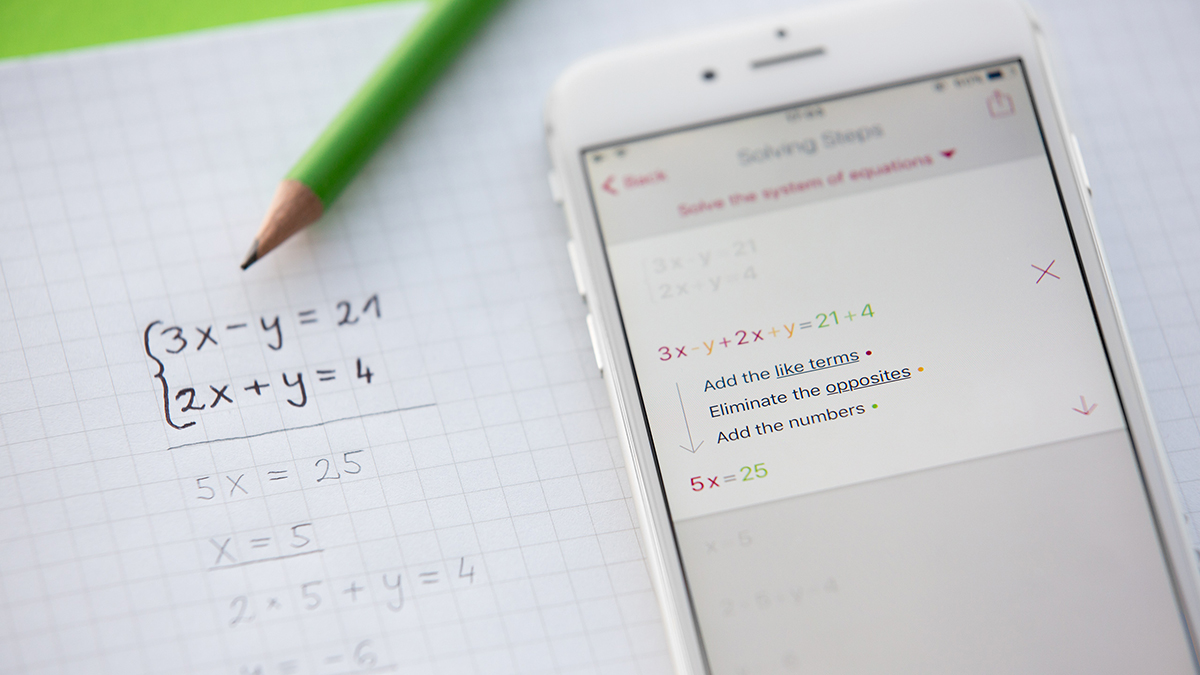 3x - y = 21
2x + y = 4
5x = 25
x = 5
2 × 5 + y = 4
y = -6
Back
Solving Steps
Solve the system of equations
3x-y=21
2x+y=4
3x-y+2x+y=21+4
Add the like terms
Eliminate the opposites
Add the numbers
5x=25
x=5
2·5+y=4